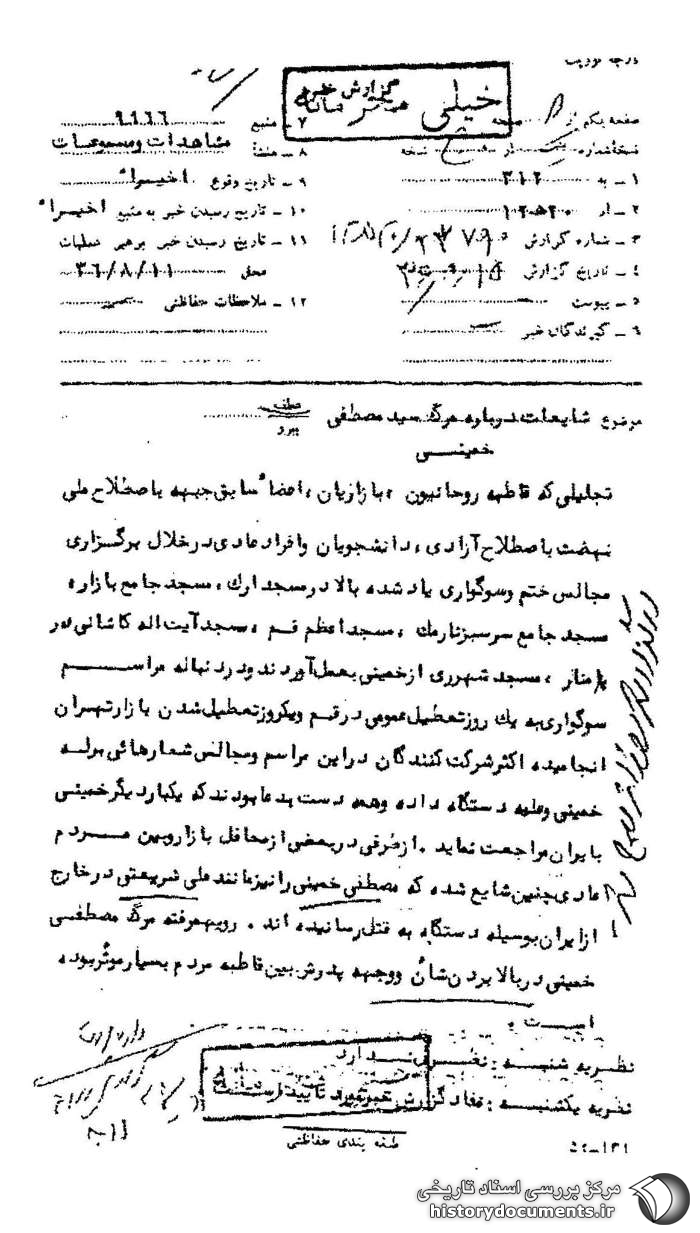 درجه فوریت
خیلی
گزارش خبر
صفحه یکم از صفحه
نسخه شماره از نسخه
۱ ـ به ۳۱۲
۲ ـ از ۲۰ﻫ۱۲
۳ ـ شماره گزارش
۴ ـ تاریخ گزارش
۵ ـ پیوست
۶ ـ گیرندگان خبر
۷ ـ منبع ۹۱۶۶
۸ ـ منشأ مشاهدات ومسموعات
۹ ـ تاریخ وقوع اخیراً
۱۰ ـ تاریخ رسیدن خبر به منبع اخیراً
۱۱ ـ تاریخ رسیدن خبر برهبر عملیات
محل ۳۶/۸/۱۱
۱۲ ـ ملاحظات حفاظتی
موضوع شایعات درباره مرگ سید مصطفی
خمینی
عطف
پیرو
تجلیلی که قاطبه روحانیون ، بازاریان ، اعضاً سابق جبهه باصطلاح ملی
نهضت باصطلاح آزادی ، دانشجویان وافراد عادی در خلال برگزاری
مجالس ختم وسوگواری یاد شده بالا در مسجد ارک ، مسجد جامع بازار ،
مسجد جامع سرسبز نارمک ، مسجد اعظم قم ، مسجد آیت اله کاشانی در
پامنار ، مسجد شهرری از خمینی بعمل آوردند ودر دنباله مراسم
سوگواری به یک روز تعطیل عمومی در قم ویکروز تعطیل شدن بازار تهران
انجامیده اکثر شرکت کنندگان در این مراسم ومجالس شعارهائی برله
خمینی وعلیه دستگاه داده وهمه دست بدعا بودند که یکبار دیگر خمینی
بایران مراجعت نماید . از طرفی در بعضی از محافل بازار وبین مردم
عادی چنین شایع شده که مصطفی خمینی را نیز مانند علی شریعتی در خارج
از ایران بوسیله دستگاه به قتل رسانیده اند . رویهمرفته مرگ مصطفی
خمینی در بالا بردن شأن ووجهه پدرش بین قاطبه مردم بسیار موثر بوده
است .
نظریه شنبه : نظری ندارد
نظریه یکشنبه : مفاد گزارش خبر مورد تأیید است
طبقه بندی حفاظتی
۵۲-۱۳۱
مرکز بررسی اسناد تاریخی
historydocuments.ir